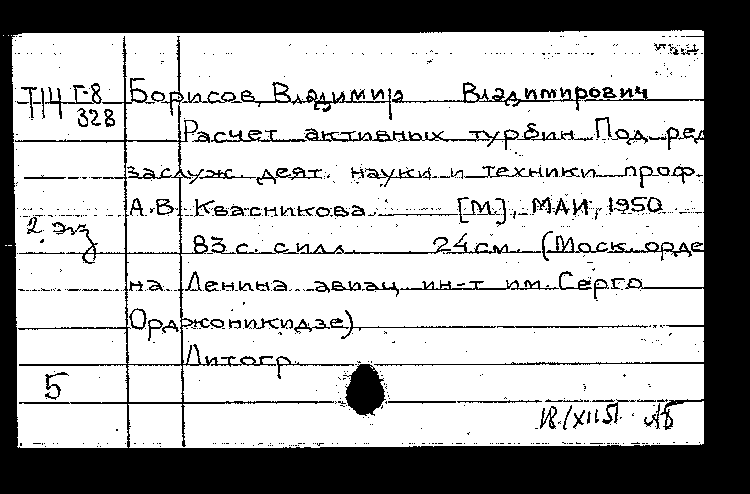 Т14 Г-8 Борисов, Владимир Владимирович
328
Расчет активных турбин Под ред
заслуж. деят. науки и техники проф.
А.В. Квасникова. [М], МАИ, 1950
2 экз
83 с. с илл. 24 см. (Моск. орде
на Ленина авиац. ин-т им. Серго
Орджоникидзе).
Литогр.
5
18/XII 51 АБ